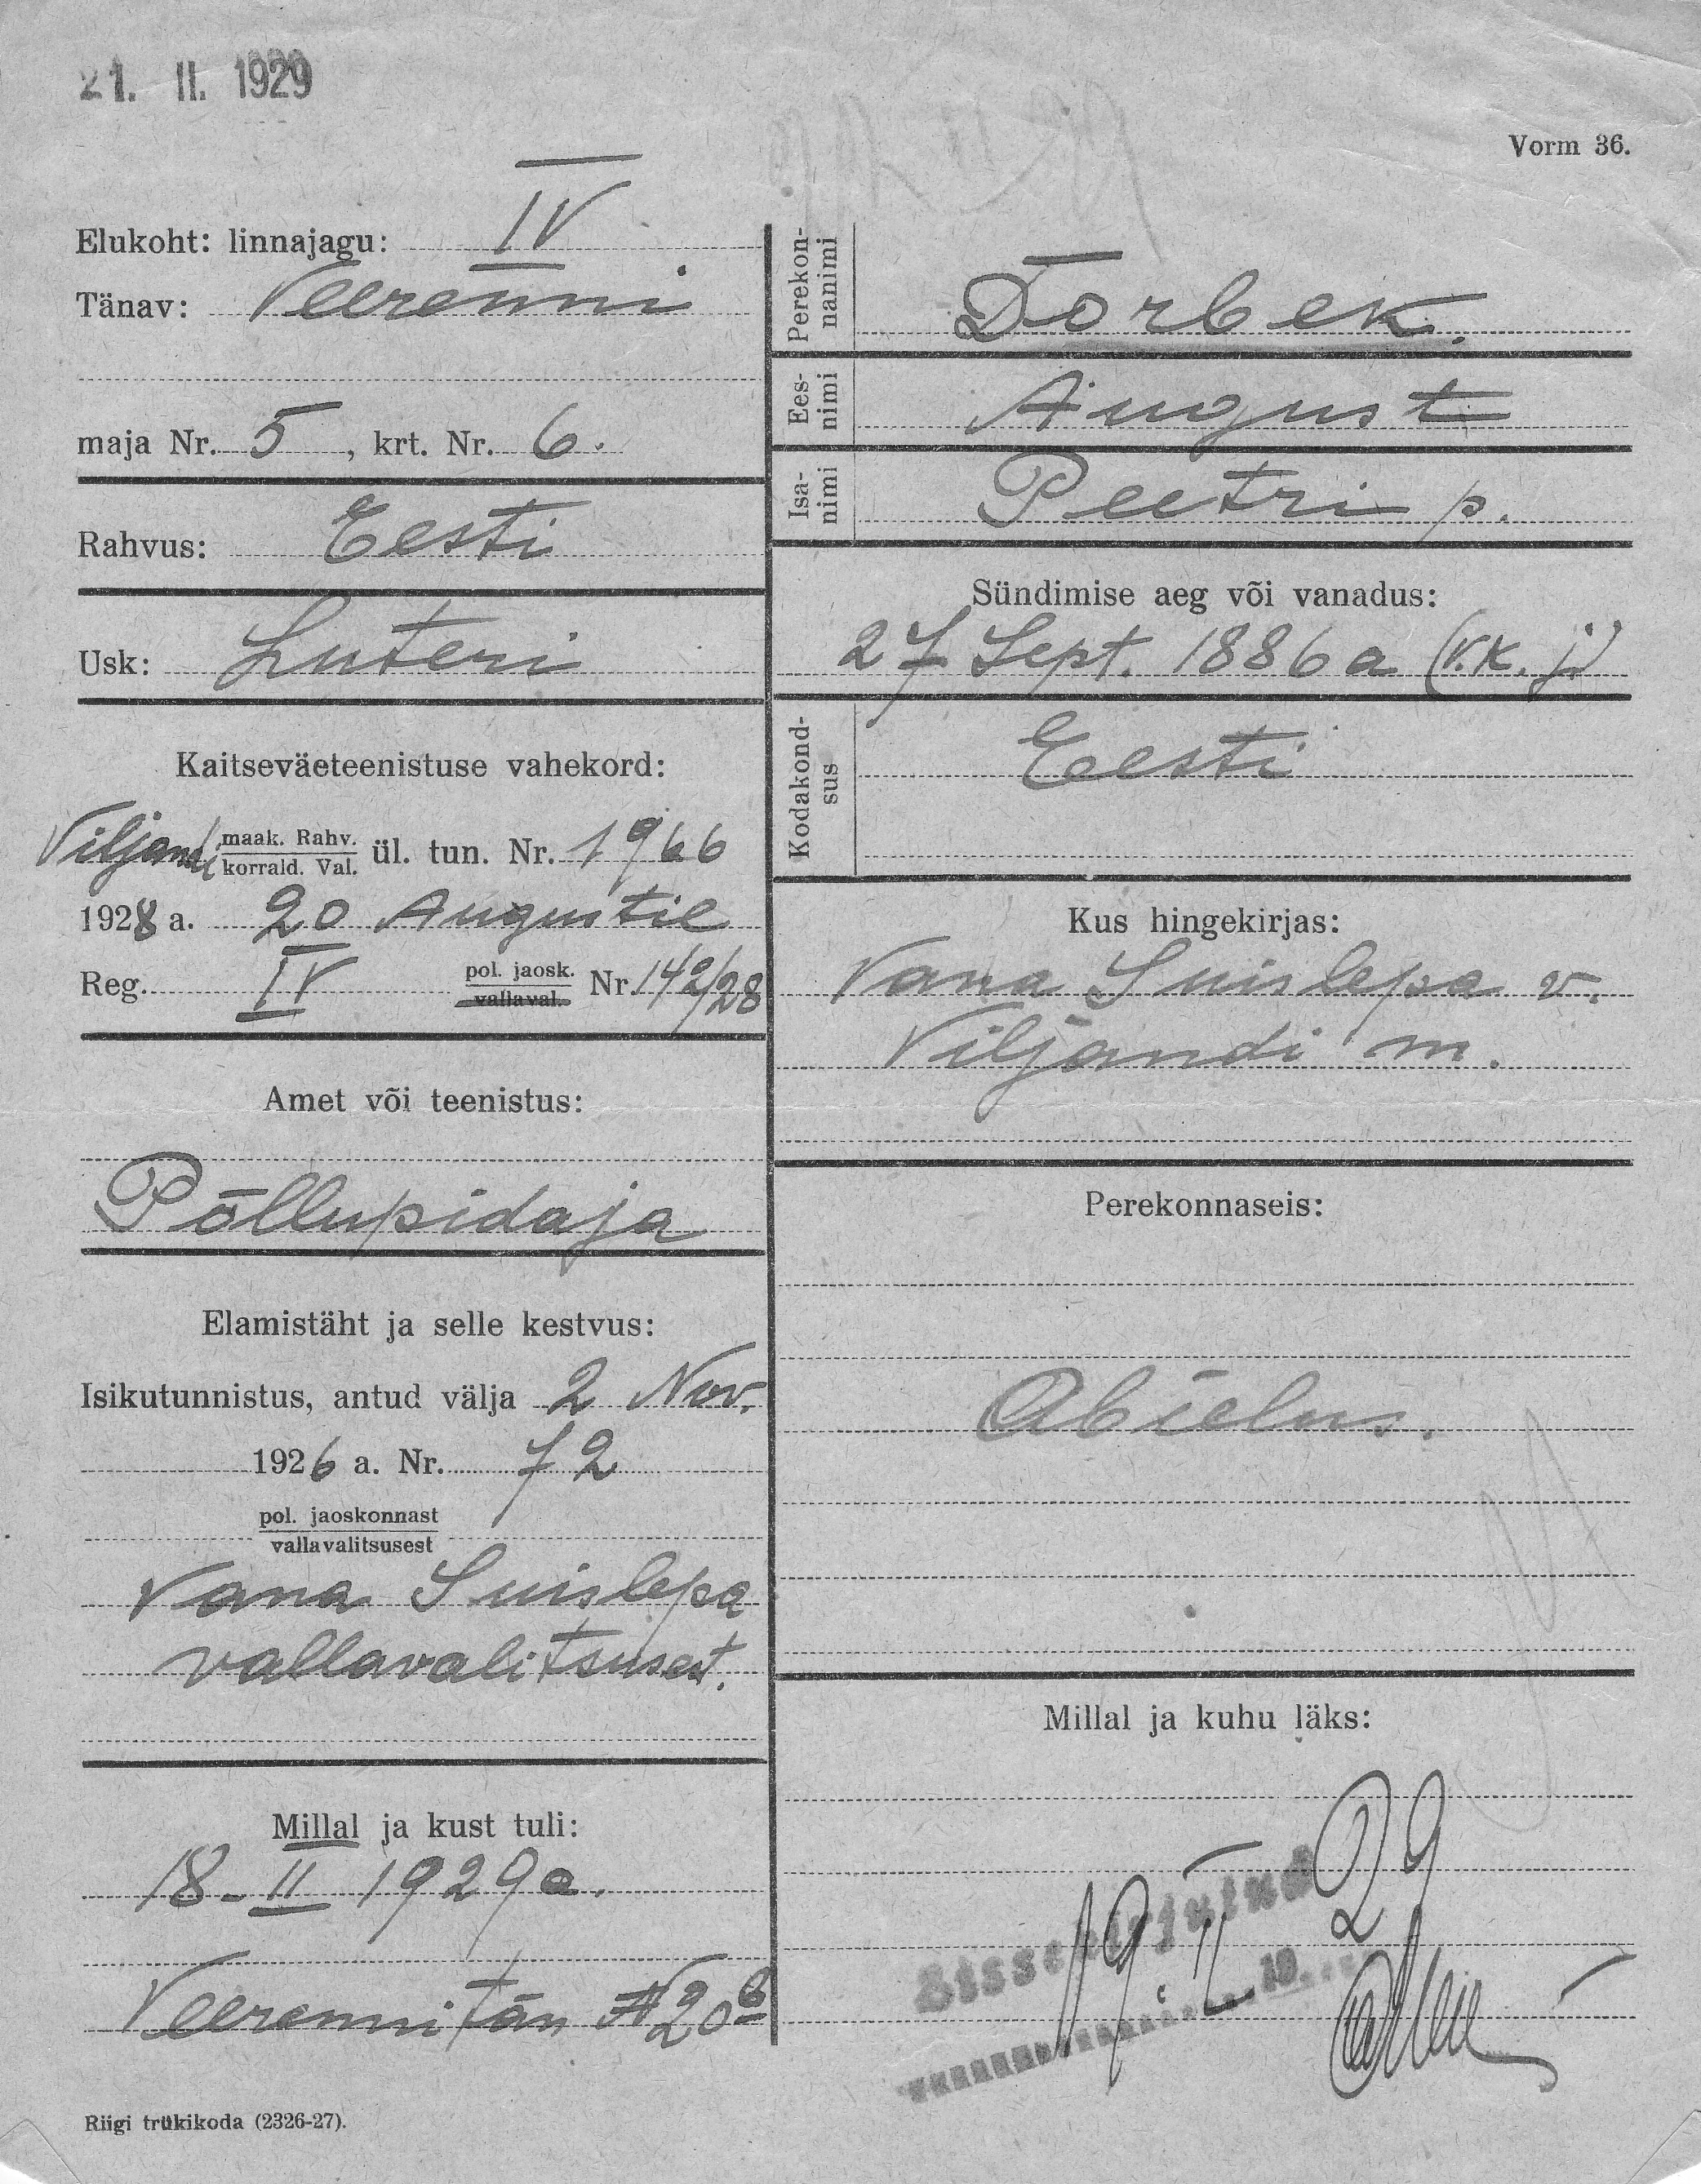 21. II. 1929
Vorm 36.
Elukoht: linnajagu: IV
Tänav: Veerenni
maja Nr. 5, krt. Nr. 6.
Rahvus: Eesti
Usk: Luteri
Kaitseväeteenistuse vahekord:
Viljandi maak. Rahv. korrald. Val. ül. tun. Nr. 1966
1928 a. 20 Augustil
Reg. IV pol. jaosk. vallaval. Nr. 142/28
Amet või teenistus:
Põllupidaja
Elamistäht ja selle kestvus:
Isikutunnistus, antud välja 2 Nov.
1926 a. Nr. 72
pol. jaoskonnast
vallavalitsusest
Vana Suislepa
vallavalitsusest.
Millal ja kust tuli:
18-II 1929a.
Veerenni tän № 20
Riigi trükikoda (2326-27).
Perekon-
nanimi
Torbek.
Ees-
nimi
August
Isa-
nimi
Peetri p.
Sündimise aeg või vanadus:
27 Sept. 1886 a (v.k.j)
Kodakond-
sus
Eesti
Kus hingekirjas:
Vana Suislepa v.
Viljandi m.
Perekonnaseis:
Abielus.
Millal ja kuhu läks:
Sisse kirjutud
19. II 29